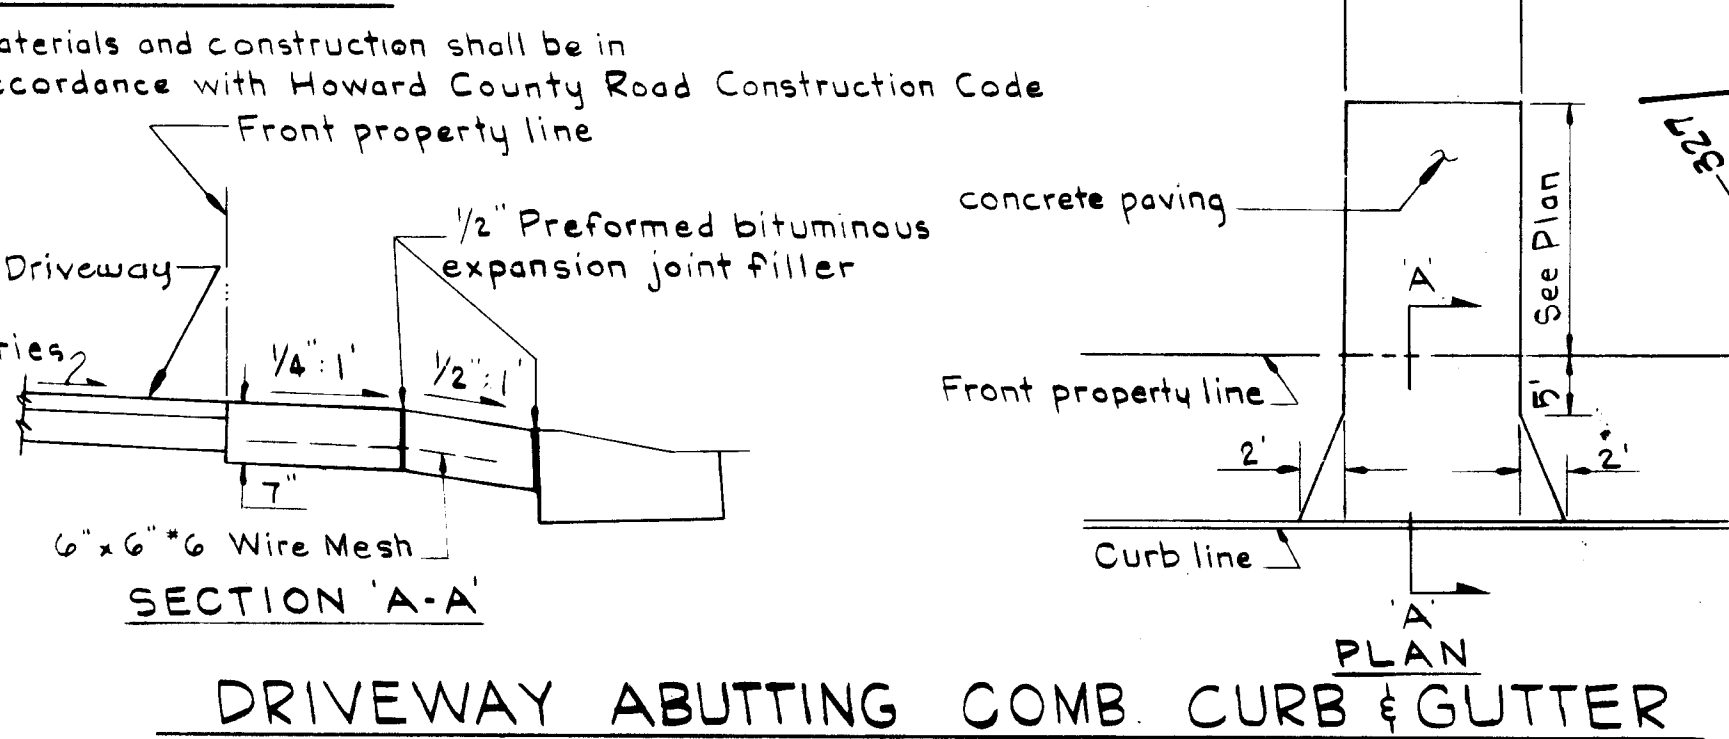 aterials and construction shall be in
ccordance with Howard County Road Construction Code
Front property line
1/2" Preformed bituminous
expansion joint filler
Driveway
ries
1/4" : 1'
1/2" : 1'
7"
6" x 6" #6 Wire Mesh
SECTION 'A-A'
concrete paving
See Plan
327
'A'
Front property line
5'
2'
2'
Curb line
'A'
PLAN
DRIVEWAY ABUTTING COMB. CURB & GUTTER